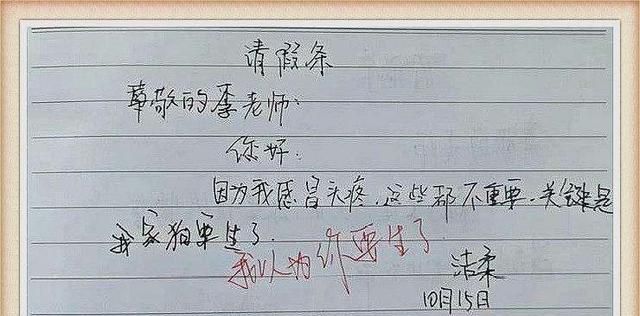 请假条
尊敬的李老师：
你好：
因为我感冒头疼，这些都不重要，关键是
我家狗要生了.
我以为你要生了
洁柔
10月15日